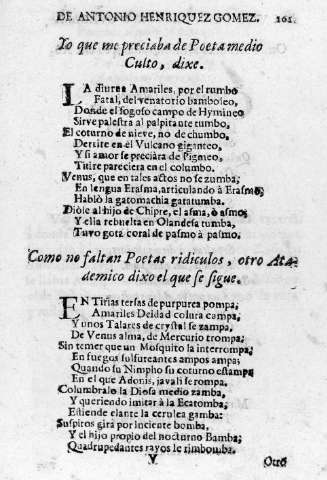 DE ANTONIO HENRIQUEZ GOMEZ. 161
Yo que me preciaba de Poeta medio
Culto, dixe.
LA diurna Amariles, por el rumbo
Fatal, del venatorio bamboleo,
Donde el fogoso campo de Hymineo
Sirve palestra al palpitante tumbo,
El coturno de nieve, no de chumbo,
Derrite en el Vulcano giganteo,
Y si amor se preciàra de Pigmeo,
Titire pareciera en el columbo.
Venus, que en tales actos no se zumba,
En lengua Erasma, articulando à Erasmo,
Hablò la gatomachia gatatumba.
Diòle al hijo de Chipre, el asma, ò asmo,
Y ella rebuelta en Olandesa tumba,
Tuvo gota coral de pasmo à pasmo.
Como no faltan Poetas ridiculos, otro Aca-
demico dixo el que se sigue.
EN Tirias tersas de purpurea pompa,
Amariles Deidad colura campa,
Y unos Talares de crystal se zampa,
De Venus alma, de Mercurio trompa;
Sin temer que un Mosquito la interrompa,
En fuegos sulfureantes ampos ampa;
Quando su Nimpho su coturno estampa
En el que Adonis, javali se rompa.
Columbralo la Diosa medio zamba,
Y queriendo imitàr à la Ecatomba,
Estiende elante la cerulea gamba:
Suspiros girà por luciente bomba,
Y el hijo propio del nocturno Bamba,
Quadrupedantes rayos le rimbomba.
V Otro